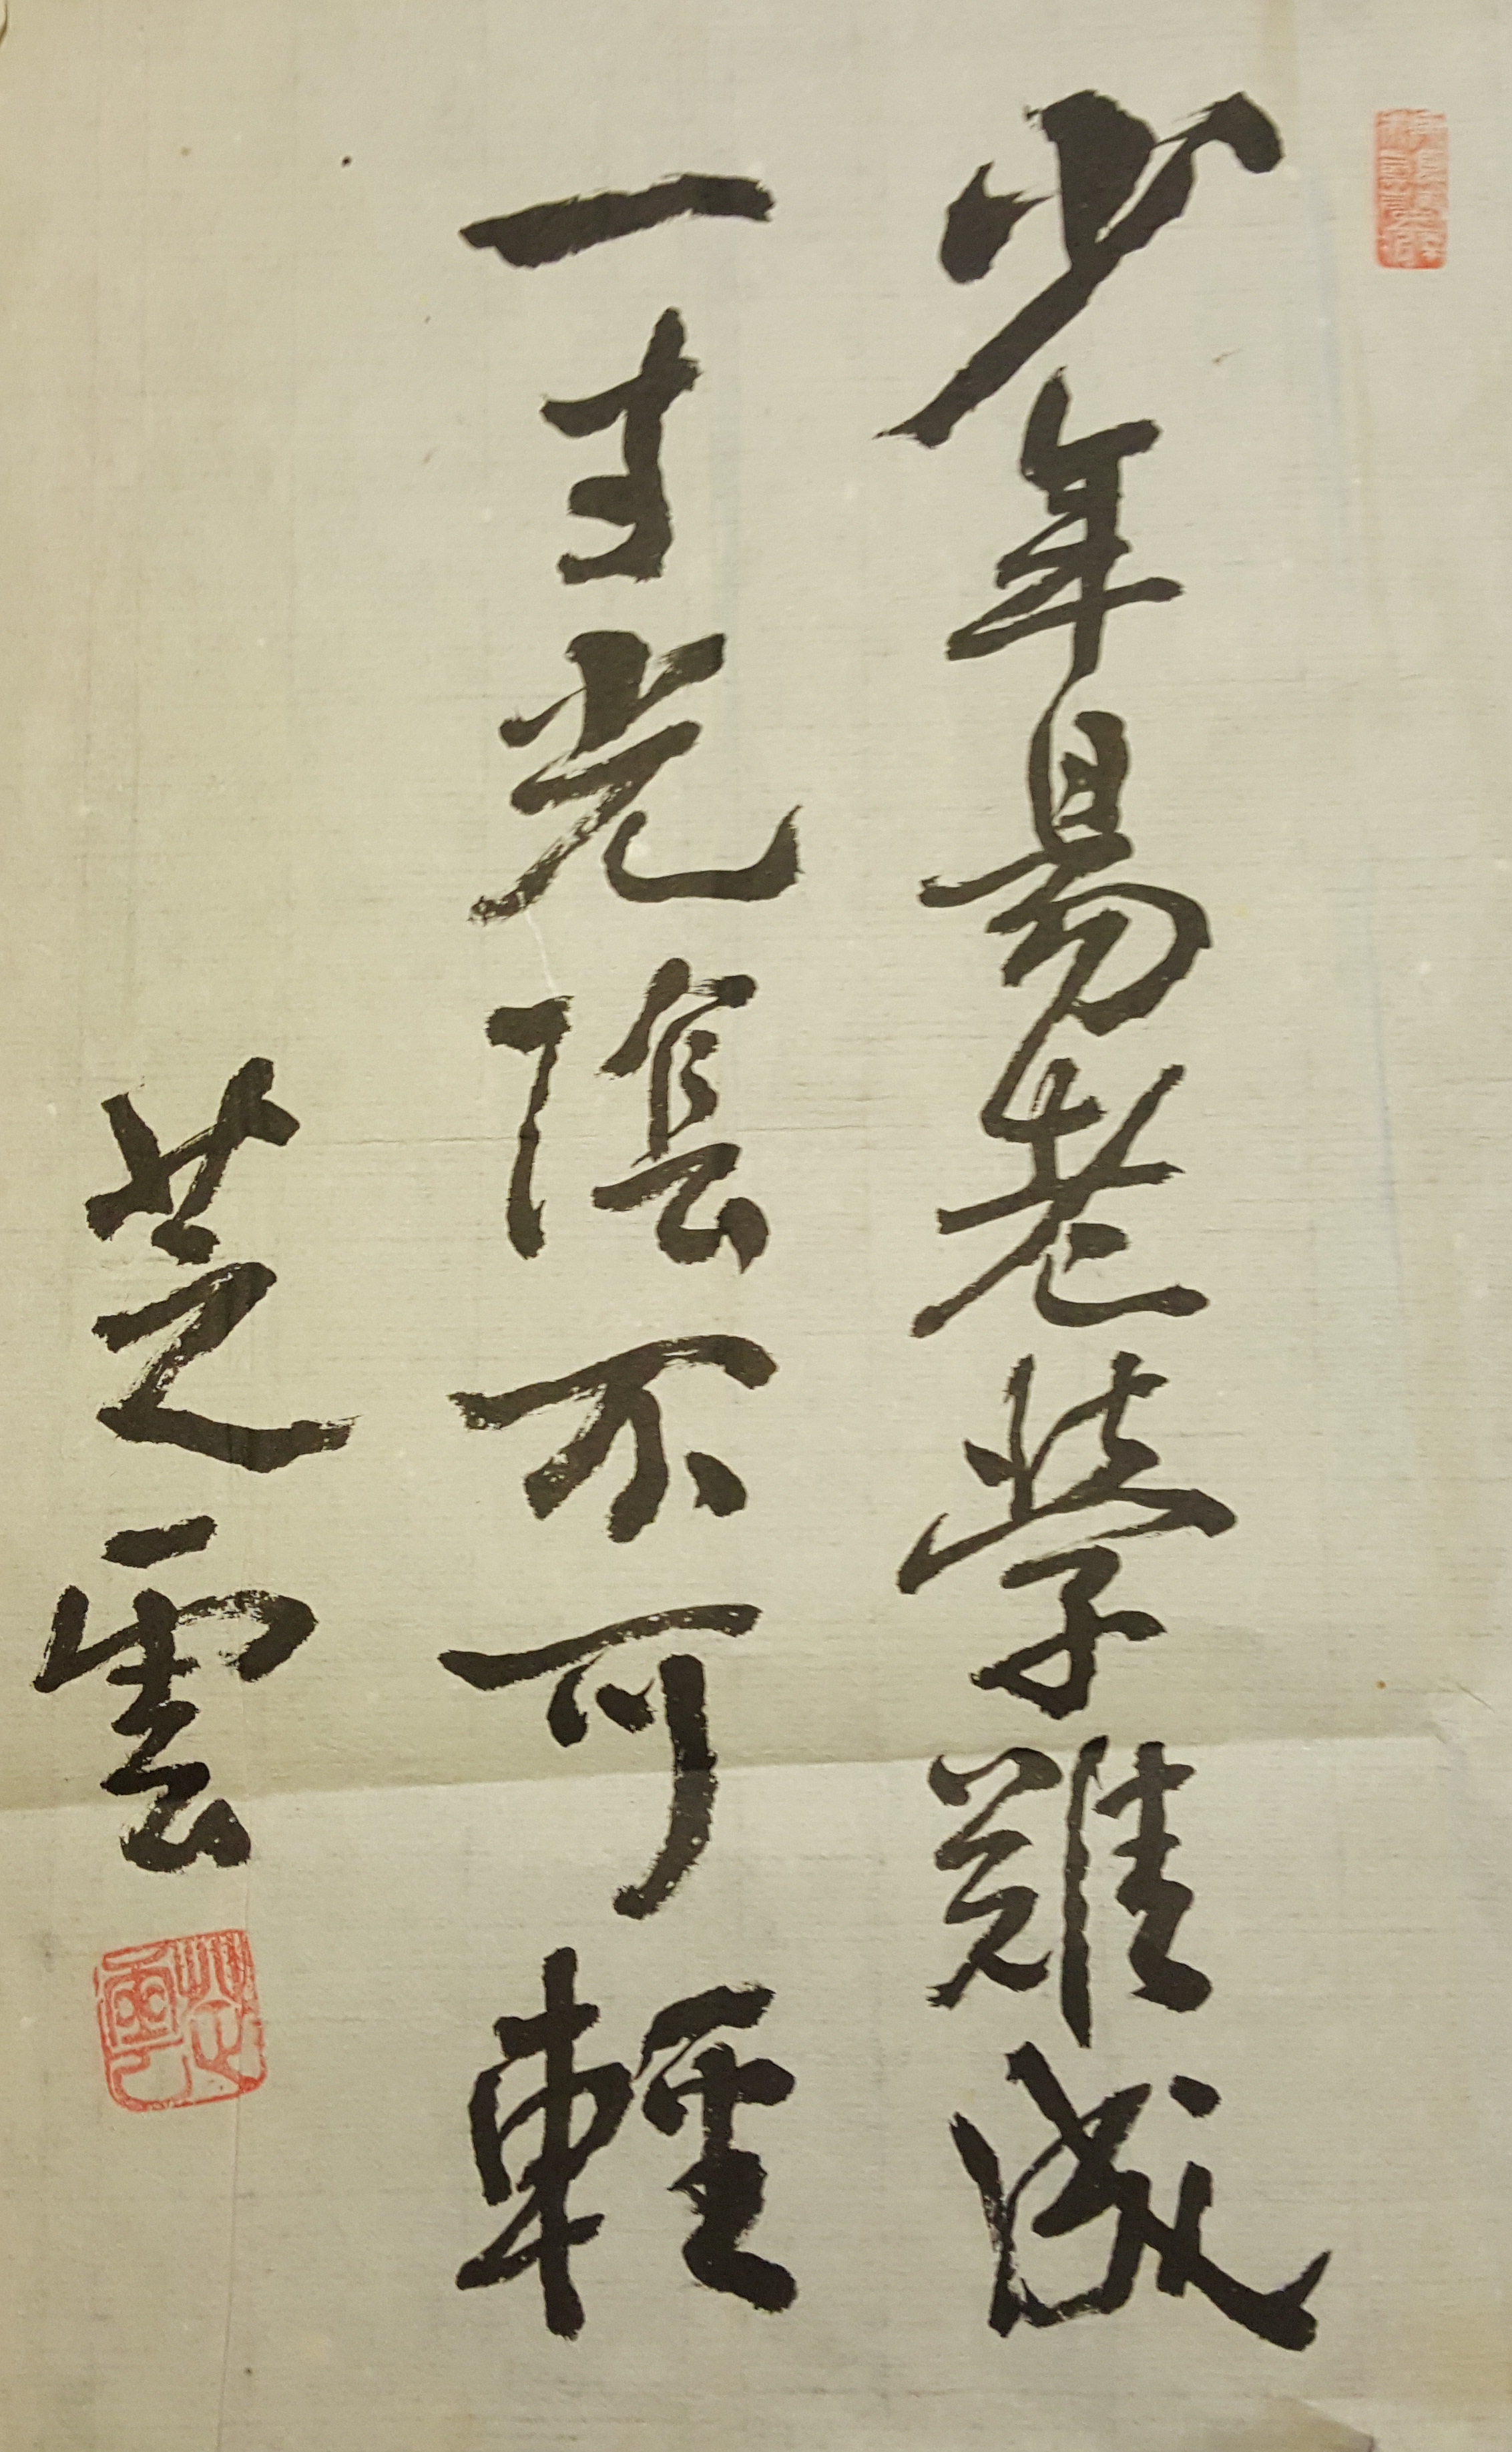 少年易老學難成
一寸光陰不可輕
芝雲
芝雲